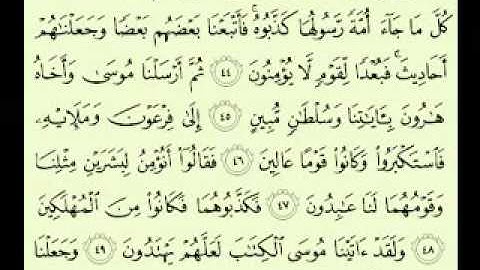 كُلَّ مَا جَآءَ أُمَّةً رَّسُولُهَا كَذَّبُوهُ ۚ فَأَتْبَعْنَا بَعْضَهُم بَعْضًا وَجَعَلْنَـٰهُمْ
أَحَادِيثَ ۚ فَبُعْدًا لِّقَوْمٍ لَّا يُؤْمِنُونَ ٤٤ ثُمَّ أَرْسَلْنَا مُوسَىٰ وَأَخَاهُ
هَـٰرُونَ بِـَٔايَـٰتِنَا وَسُلْطَـٰنٍ مُّبِينٍ ٤٥ إِلَىٰ فِرْعَوْنَ وَمَلَإِيْهِۦ
فَٱسْتَكْبَرُوا۟ وَكَانُوا۟ قَوْمًا عَالِينَ ٤٦ فَقَالُوٓا۟ أَنُؤْمِنُ لِبَشَرَيْنِ مِثْلِنَا
وَقَوْمُهُمَا لَنَا عَـٰبِدُونَ ٤٧ فَكَذَّبُوهُمَا فَكَانُوا۟ مِنَ ٱلْمُهْلَكِينَ
٤٨ وَلَقَدْ ءَاتَيْنَا مُوسَى ٱلْكِتَـٰبَ لَعَلَّهُمْ يَهْتَدُونَ ٤٩ وَجَعَلْنَا